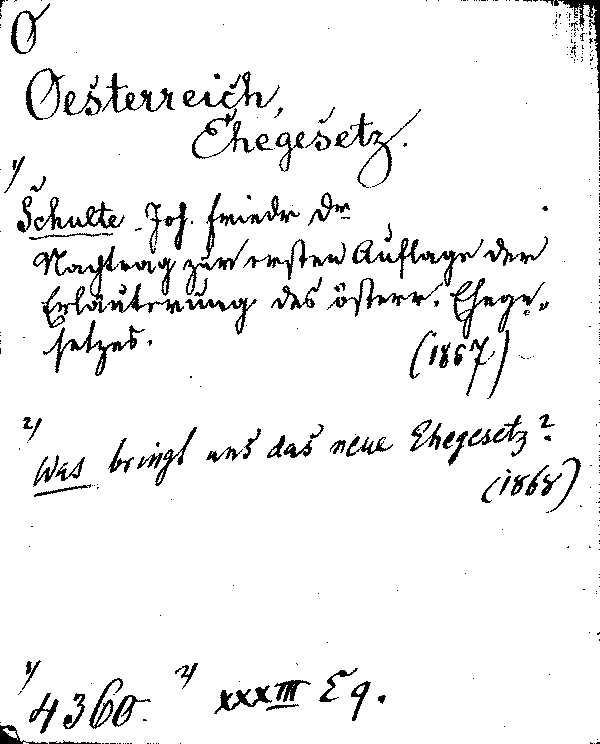 O
Oesterreich,
Ehegesetz.
1)
Schulte Joh. Friedr Dr
Nachtrag zur ersten Auflage der
Erläuterung des österr. Ehege-
setzes.
(1867)
2)
Was bringt uns das neue Ehegesetz?
(1868)
1) 4360. 2) XXXIII E 9.